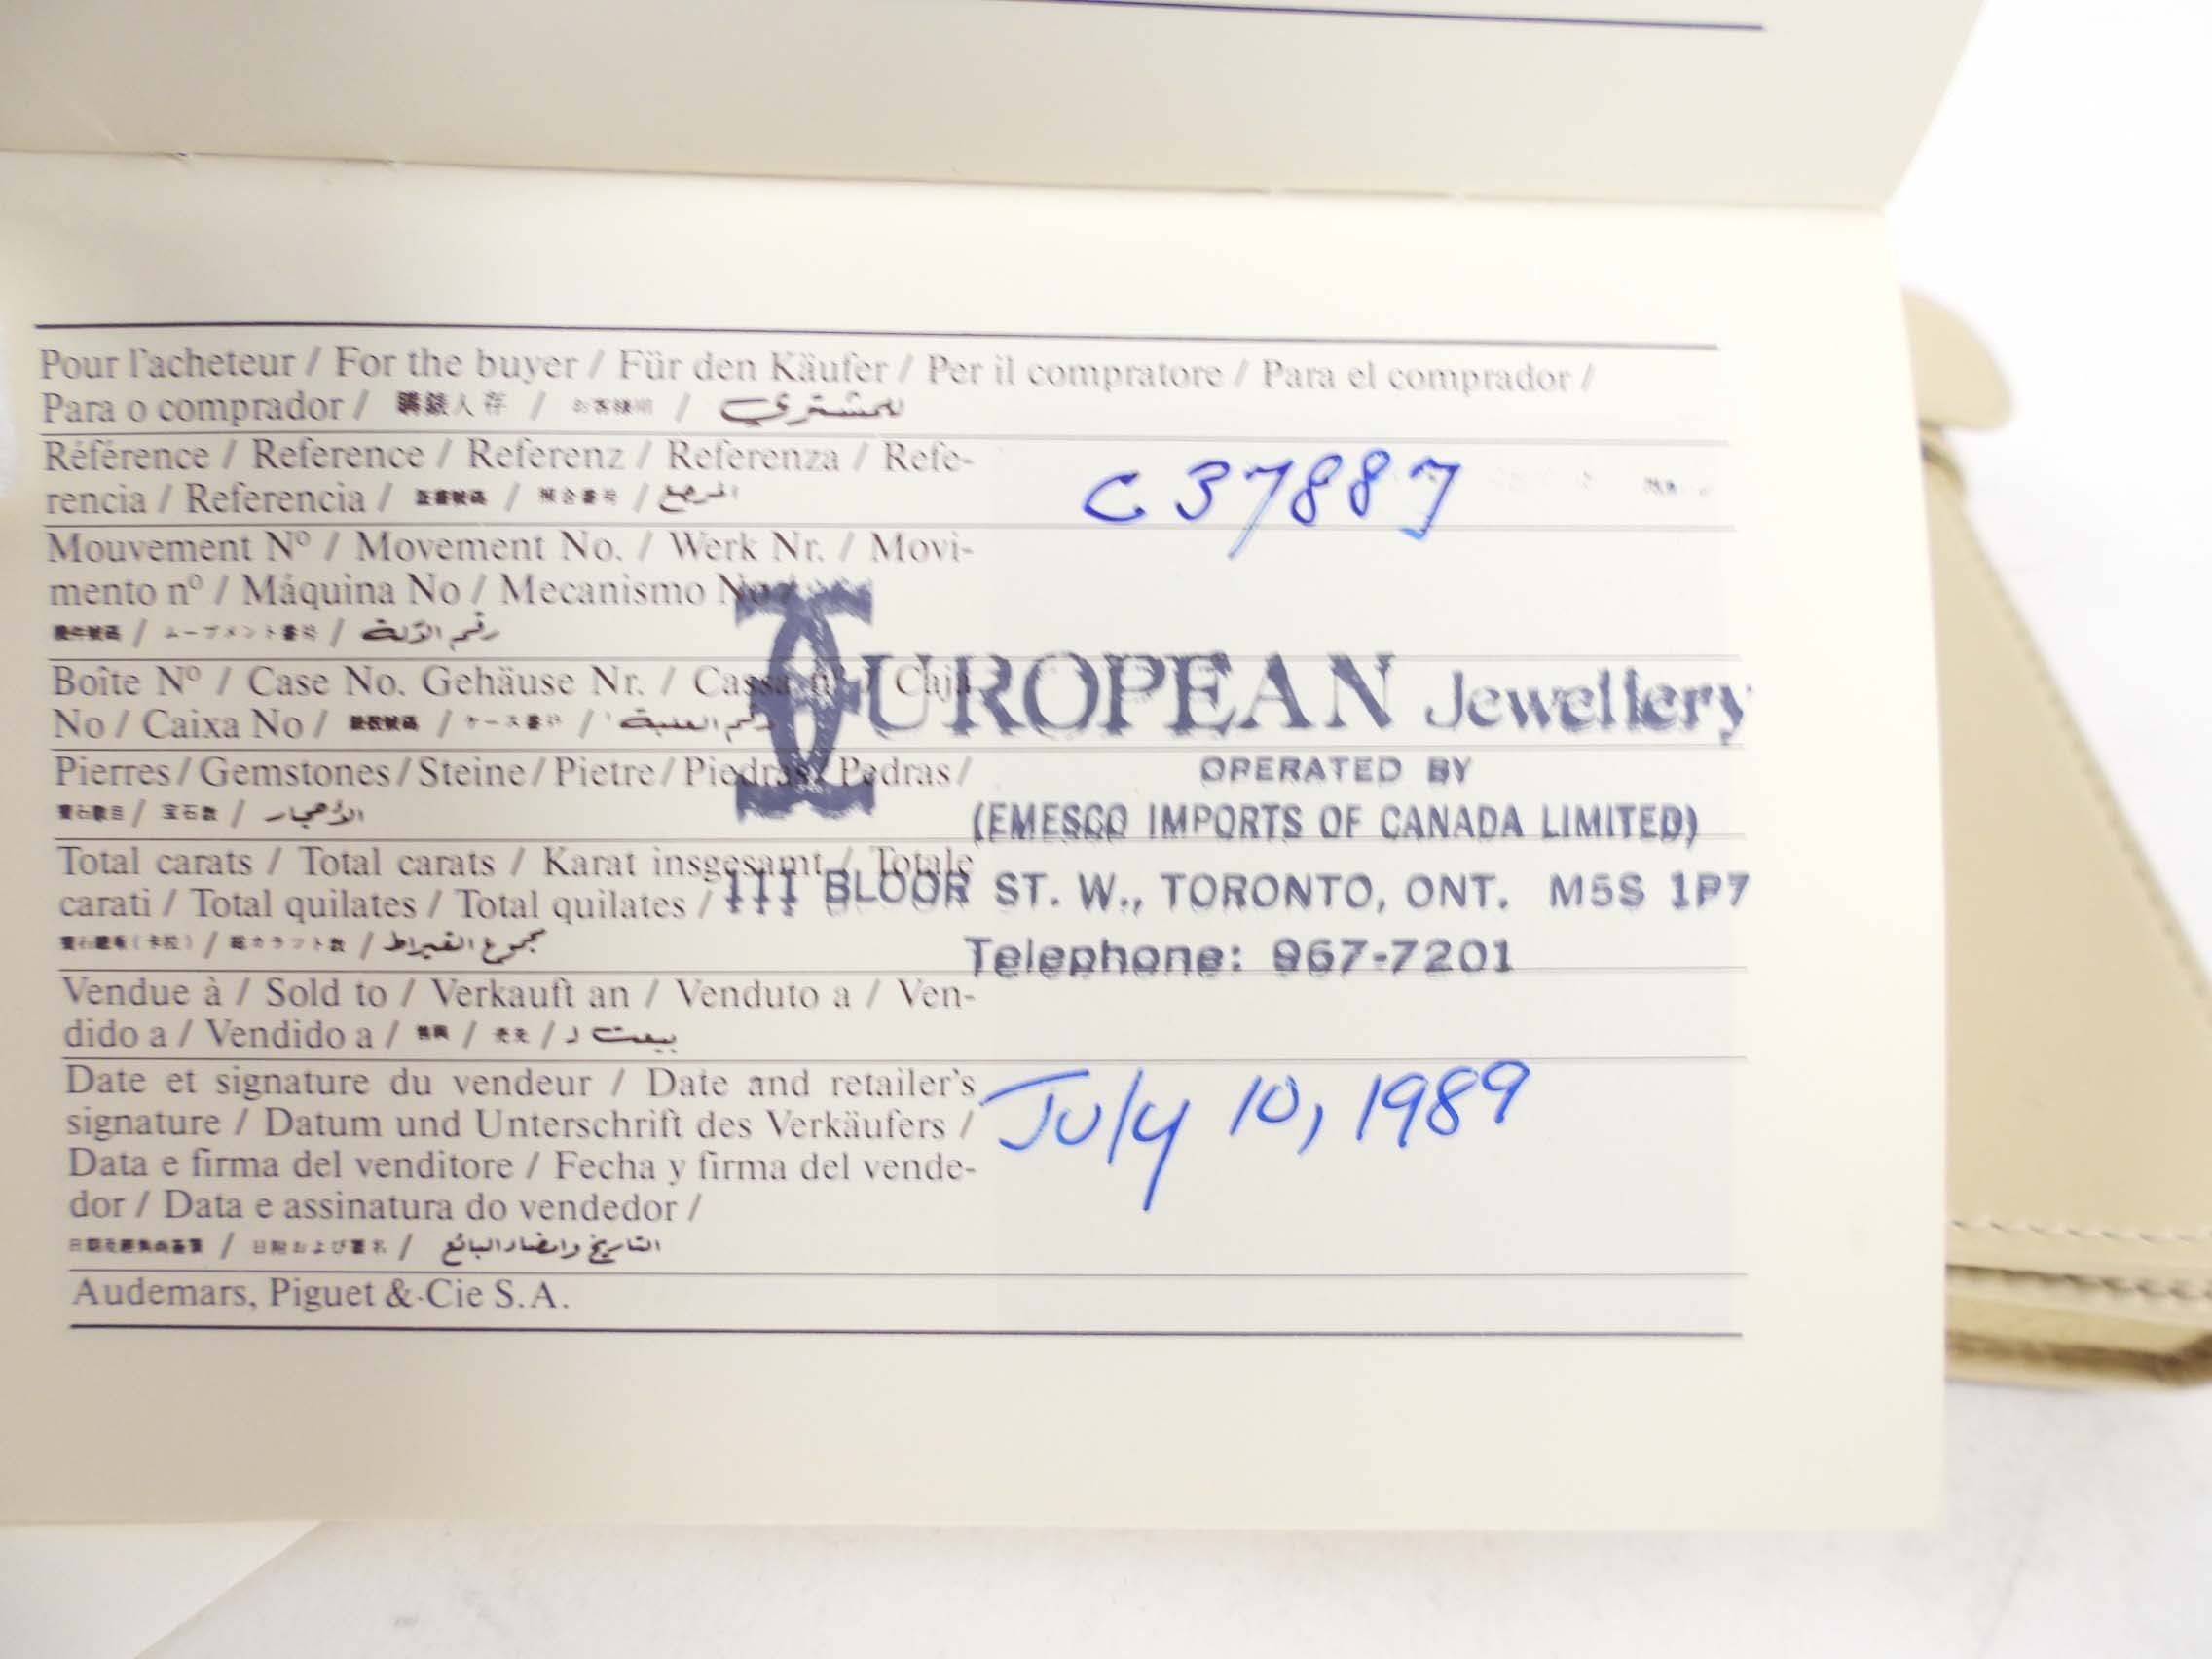 Pour l'acheteur / For the buyer / Für den Käufer / Per il compratore / Para el comprador /
Para o comprador / お客様用 / للمشتري
Référence / Reference / Referenz / Referenza / Refe-
rencia / Referencia / 照合番号 / المرجع
C 37887
Mouvement Nº / Movement No. / Werk Nr. / Movi-
mento nº / Máquina No / Mecanismo No /
機件號碼 / ムーブメント番号 / رقم الآلة
Boîte Nº / Case No. Gehäuse Nr. / Cassa nº / Caja
No / Caixa No / 錶殼號碼 / ケース番号 / رقم العلبة
EUROPEAN Jewellery
Pierres / Gemstones / Steine / Pietre / Piedras / Pedras /
寶石數目 / 宝石数 / الأحجار
OPERATED BY
(EMESCO IMPORTS OF CANADA LIMITED)
Total carats / Total carats / Karat insgesamt / Totale
carati / Total quilates / Total quilates /
総カラット数 / مجموع القيراط
111 BLOOR ST. W., TORONTO, ONT. M5S 1P7
Telephone: 967-7201
Vendue à / Sold to / Verkauft an / Venduto a / Ven-
dido a / Vendido a / 售與 / 売先 / بيعت لـ
Date et signature du vendeur / Date and retailer's
signature / Datum und Unterschrift des Verkäufers /
Data e firma del venditore / Fecha y firma del vende-
dor / Data e assinatura do vendedor /
日附および署名 / التاريخ وامضاء البائع
July 10, 1989
Audemars, Piguet & Cie S.A.